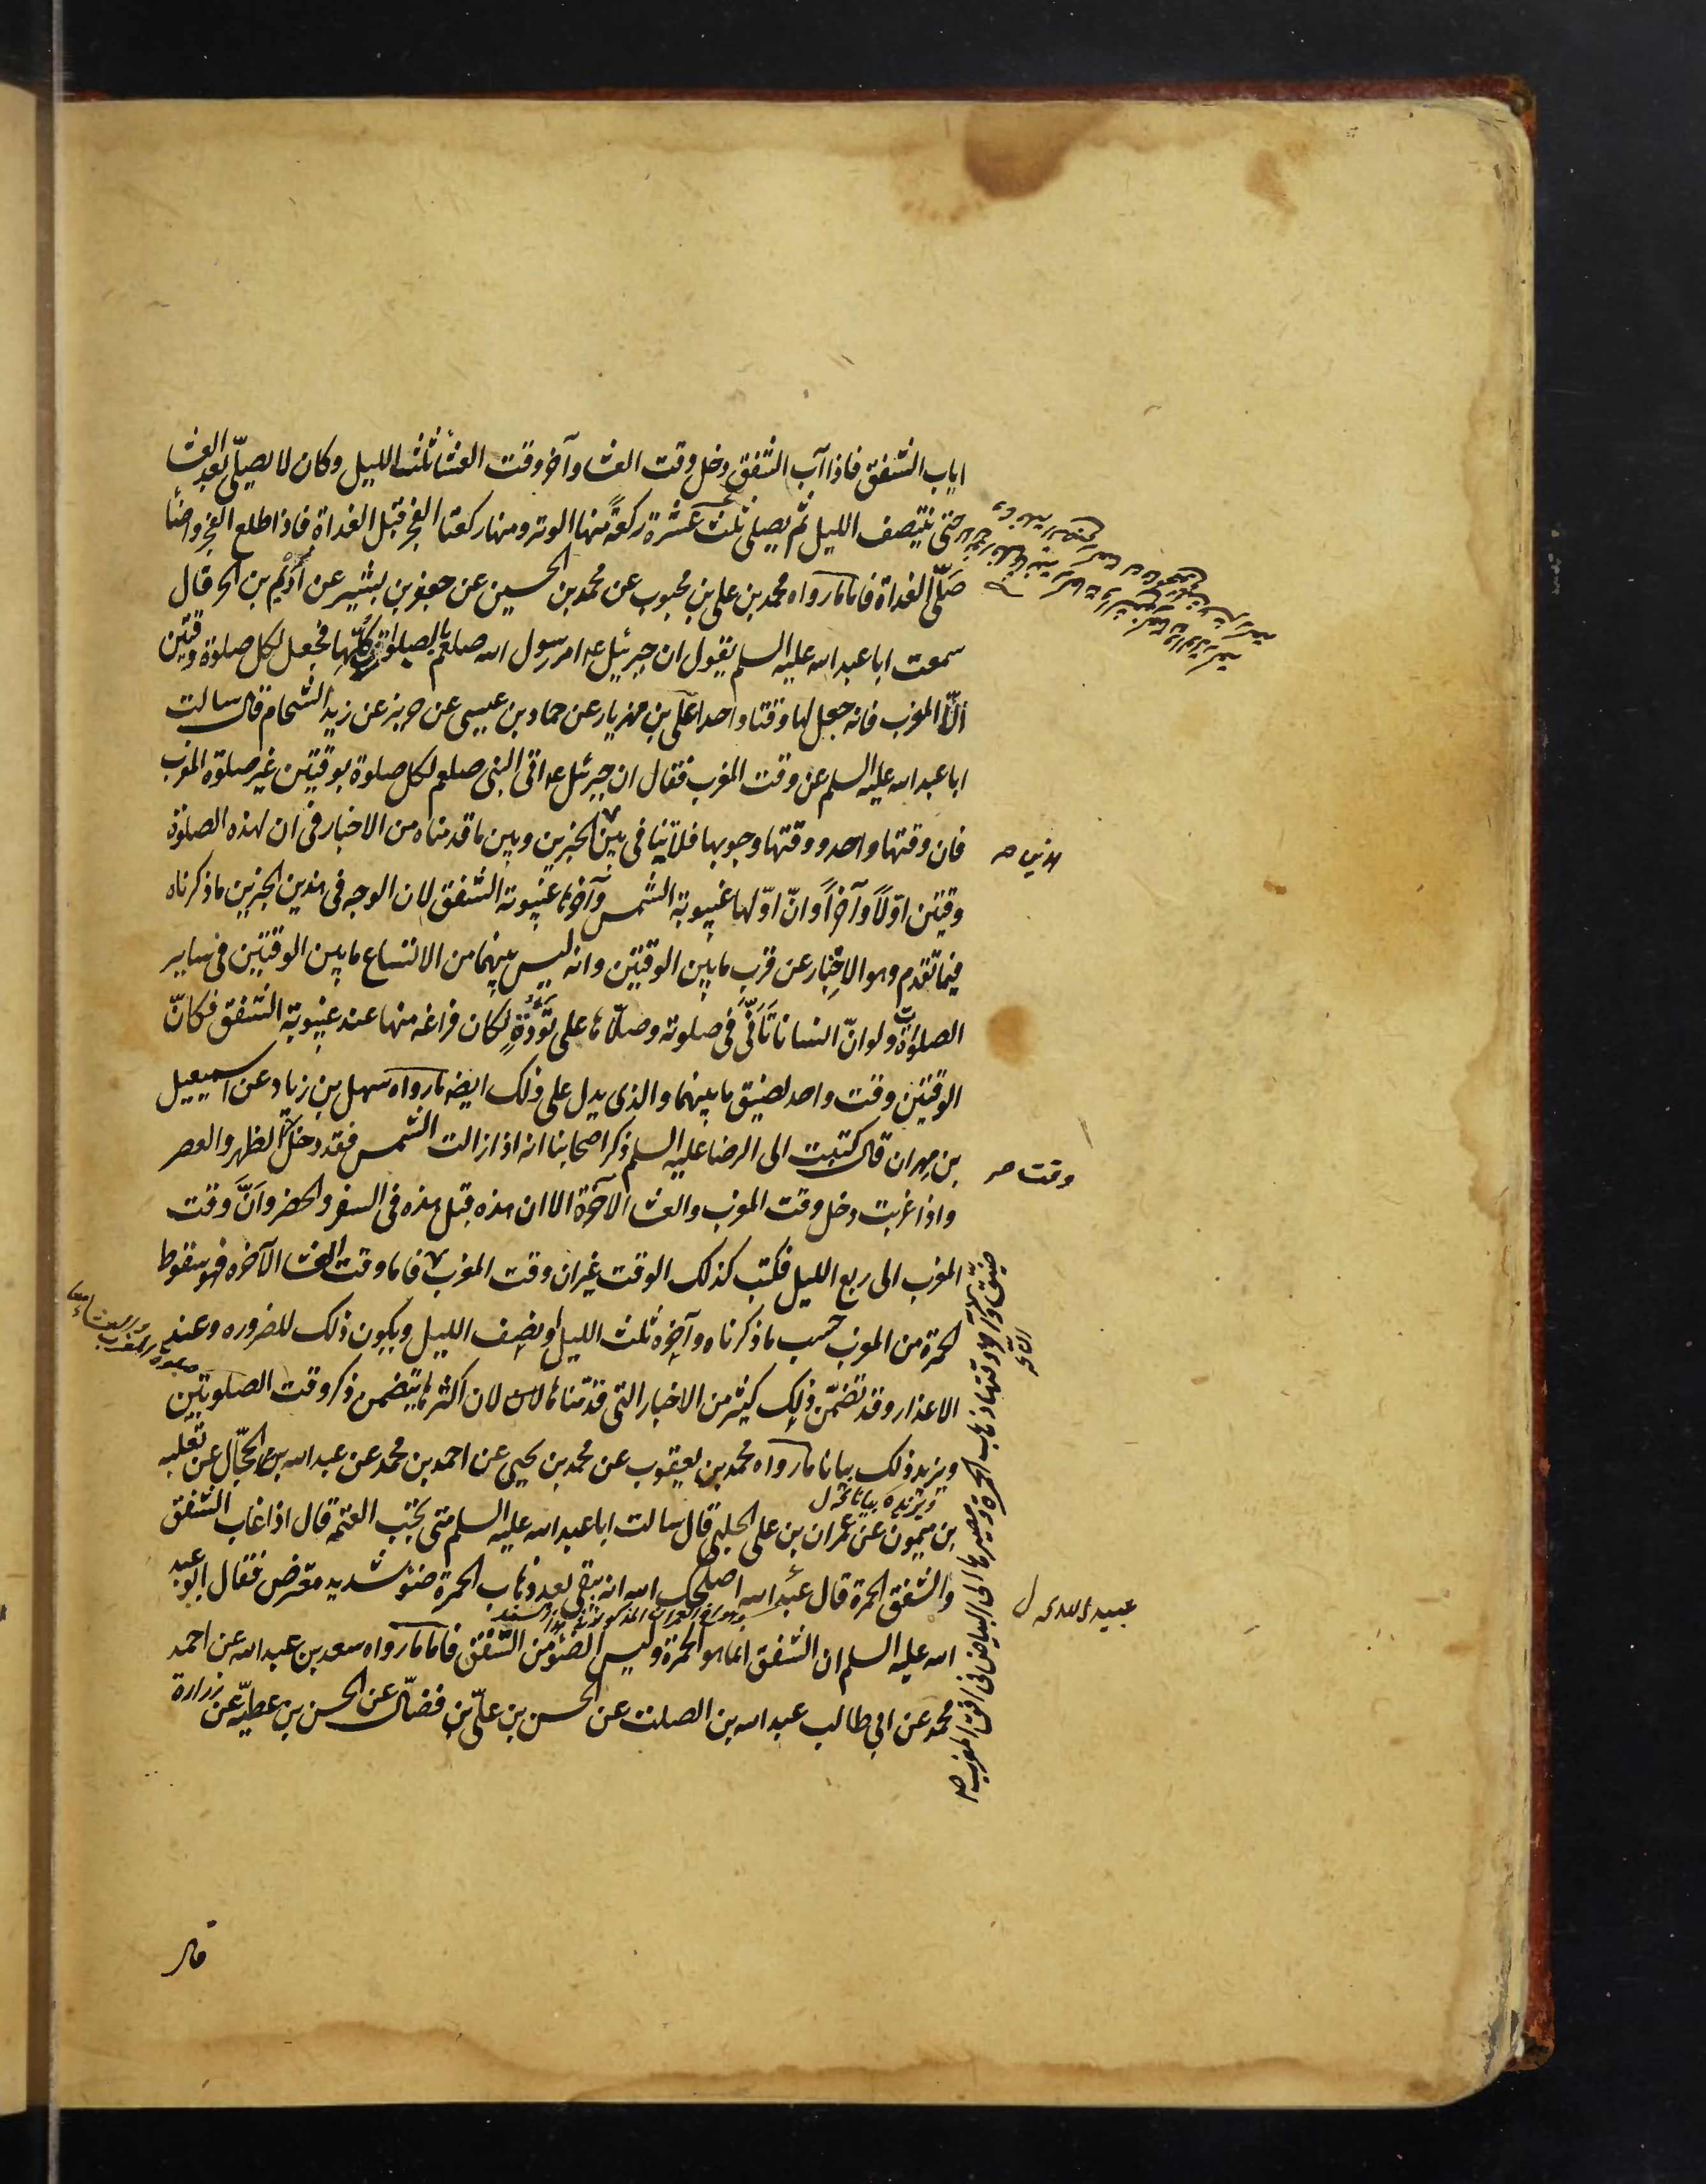 اياب الشفق فاذا آب الشفق دخل وقت العشا وآخر وقت العشأ ثلث الليل وكان لا يصلّى بعد العشا
حتى ينتصف الليل ثم يصلى ثلث عشرة ركعةً منها الوتر ومنها ركعتا الفجر قبل الغداة فاذا طلع الفجر واضأ
صَلّى الغداة فاما ما رواه محمد بن على بن محبوب عن محمد بن الحسين عن جعفر بن بشير عن أُدَيْم بن الحر قال
سمعت ابا عبد الله عليه السلم يقول ان جبرئيل ع امر رسول الله صلعم بالصلوات كلّها فجعل لكل صلوة وقتين
الّا المغرب فانه جعل لها وقتا واحدا علّى بن مهزيار عن حماد بن عيسى عن حريز عن زيد الشحام قال سالت
ابا عبد الله عليه السلم عن وقت المغرب فقال ان جبرئيل ع اتى النبى صلعم لكل صلوة بوقتين غير صلوة المغرب
فان وقتها واحد ووقتها وجوبها فلا تنافى بين الخبرين وبين ما قدمناه من الاخبار فى ان لهذه الصلوة
هذين صح
وقتين اوّلاً وآخراً وانّ اوّلها غيبوبة الشمس وآخرها غيبوبة الشفق لان الوجه فى هذين الخبرين ما ذكرناه
فيما تقدم وهو الاخبار عن قرب ما بين الوقتين وانه ليس بينهما من الاتساع ما بين الوقتين فى ساير
الصلوات ولو انّ انسانا تَأَنّى فى صلوته وصلّاها على تُؤَدَةٍ لكان فراغه منها عند غيبوبة الشفق فكانّ
الوقتين وقت واحد لضيق ما بينهما والذى يدل على ذلك ايضه ما رواه سهل بن زياد عن اسمعيل
بن مهران قال كتبت الى الرضا عليه السلم ذكر اصحابنا انه اذا زالت الشمس فقد دخل الظهر والعصر
وقت صح
واذا غربت دخل وقت المغرب والعشا الآخرة الا ان هذه قبل هذه فى السفر والحضر وانَّ وقت
المغرب الى ربع الليل فكتب كذلك الوقت غير ان وقت المغرب فاما وقت العشا الآخره فهو سقوط
ضيّق وآخر وقتها ذهاب الحمرة ومصيرها الى البياض فى افق المغرب صح
الحمرة من المغرب حسب ما ذكرناه وآخره ثلث الليل او نصف الليل ويكون ذلك للضروره وعند
الاعذار وقد تضمّن ذلك كثير من الاخبار التى قدّمناها لان اكثرها يتضمن ذكر وقت الصلوتين
ويزيد ذلك بيانا ما رواه محمد بن يعقوب عن محمد بن يحيى عن احمد بن محمد عن عبد الله بن الحجّال عن ثعلبه
ويزيده بيانا نخه ل
بن ميمون عن عمران بن على الحلبى قال سالت ابا عبد الله عليه السلم متى تجب العتمه قال اذا غاب الشفق
والشفق الحمرة قال عبد الله اصلحك الله انه يبقى بعد ذهاب الحمرة ضوء شديد معترض فقال ابو عبد
عبيد الله نخه ل
الله عليه السلم ان الشفق انما هو الحمرة وليس الضوء من الشفق فاما ما رواه سعد بن عبد الله عن احمد
محمد عن ابى طالب عبد الله بن الصلت عن الحسن بن علّى بن فضّال عن الحسن بن عطيّه عن زرارة
قال